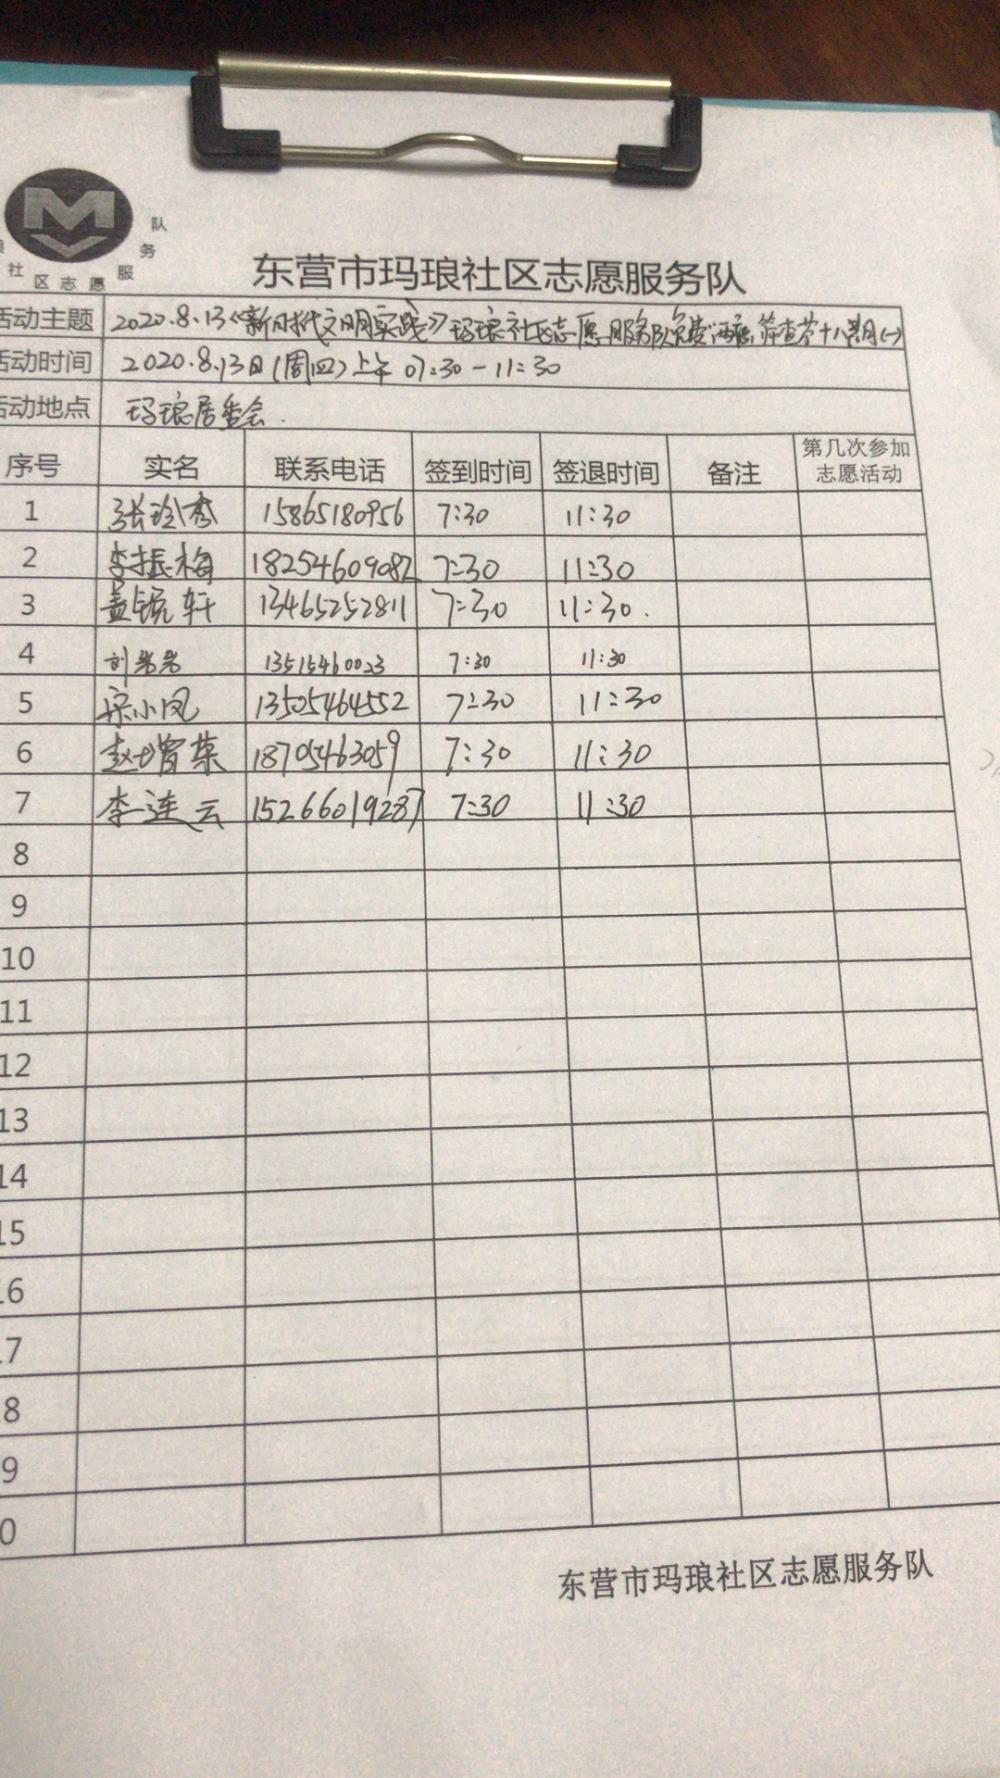 社区志愿服务队
东营市玛琅社区志愿服务队
活动主题 2020.8.13《新时代文明实践》玛琅社区志愿服务队免费 筛查第十八期(一)
活动时间 2020.8.13日(周四)上午 07:30-11:30
活动地点 玛琅居委会.
序号 实名 联系电话 签到时间 签退时间 备注 第几次参加志愿活动
1 张玲秀 15865180956 7:30 11:30
2 李振梅 18254609082 7:30 11:30
3 盖锐轩 13465252811 7:30 11:30.
4 刘岩岩 13515460023 7:30 11:30
5 梁小凤 13505464552 7:30 11:30
6 赵增荣 18705463059 7:30 11:30
7 李连云 15266019287 7:30 11:30
8
9
10
11
12
13
14
15
16
17
18
19
20
东营市玛琅社区志愿服务队